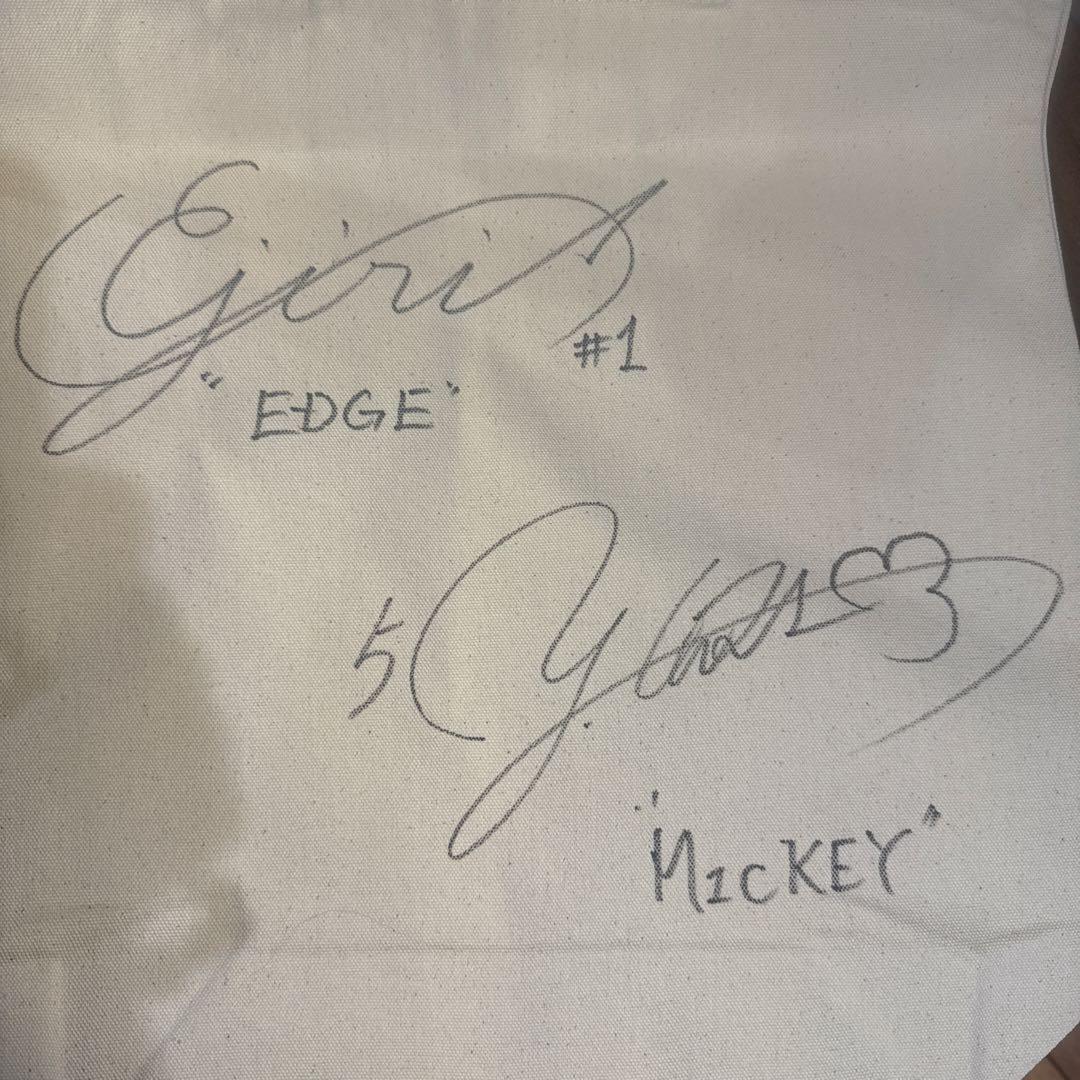 Ejiri
#1
"EDGE"
5
"MICKEY"